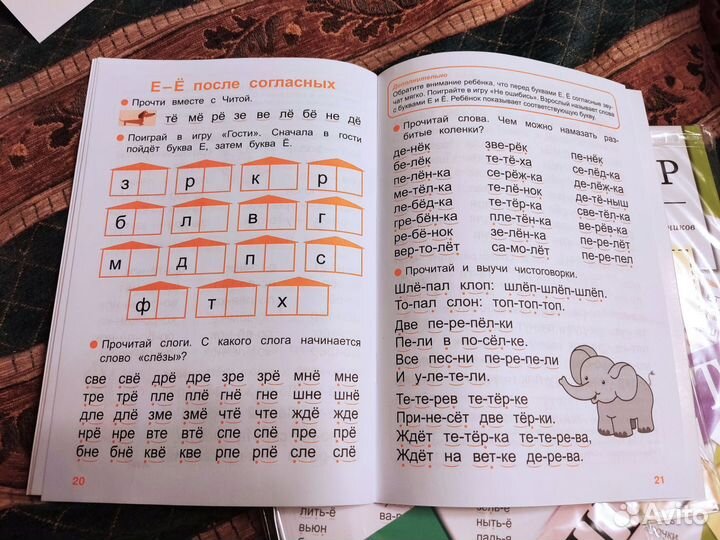 Е–Ё после согласных
Прочти вместе с Читой.
тё мё рё зе ве лё бё не дё
Поиграй в игру «Гости». Сначала в гости
пойдёт буква Е, затем буква Ё.
з р к р
б л в г
м д п с
ф т х
Прочитай слоги. С какого слога начинается
слово «слёзы»?
све свё дрё дре зре зрё мнё мне
тре трё пле плё гнё гне шне шнё
дле длё зме змё чтё чте ждё жде
нрё нре вте втё спе спё пре прё
бне бнё квё кве рпе рпё сле слё
20
Дополнительно
Обратите внимание ребёнка, что перед буквами Е, Ё согласные зву-
чат мягко. Поиграйте в игру «Не ошибись». Взрослый называет слова
с буквами Е и Ё. Ребёнок показывает соответствующую букву.
Прочитай слова. Чем можно намазать раз-
битые коленки?
де-нёк зве-рёк пе-нёк
бе-лёк те-тё-ха се-лёд-ка
пе-лён-ка се-рёж-ка де-лёж-ка
ме-тёл-ка те-лё-нок де-тё-ныш
ле-бёд-ка те-тёр-ка све-тёл-ка
гре-бён-ка пле-тён-ка ве-рёв-ка
ре-бё-нок зе-лён-ка пе-ре-лёт
вер-то-лёт са-мо-лёт пе-ре-пел
Прочитай и выучи чистоговорки.
Шлё-пал клоп: шлёп-шлёп-шлёп.
То-пал слон: топ-топ-топ.
Две пе-ре-пёл-ки
Пе-ли в по-сёл-ке.
Все пес-ни пе-ре-пе-ли
И у-ле-те-ли.
Те-те-рев те-тёр-ке
При-не-сёт две тёр-ки.
Ждёт те-тёр-ка те-те-ре-ва,
Ждёт на вет-ке де-ре-ва.
21
Р
чиков
лить-ё
вьюн
ва-р
ныть-ё
Avito